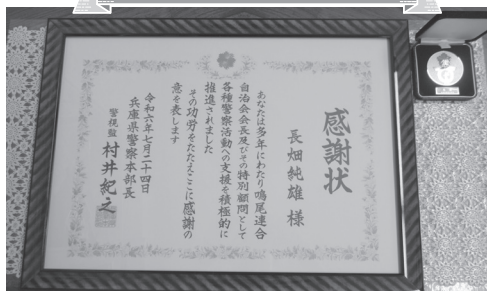 感謝状
長畑純雄 様
あなたは多年にわたり鳴尾連合
自治会会長及びその特別顧問として
各種警察活動への支援を積極的に
推進されました
その功労をたたえここに感謝の
意を表します
令和六年七月二十四日
兵庫県警察本部長
警視監 村井紀之